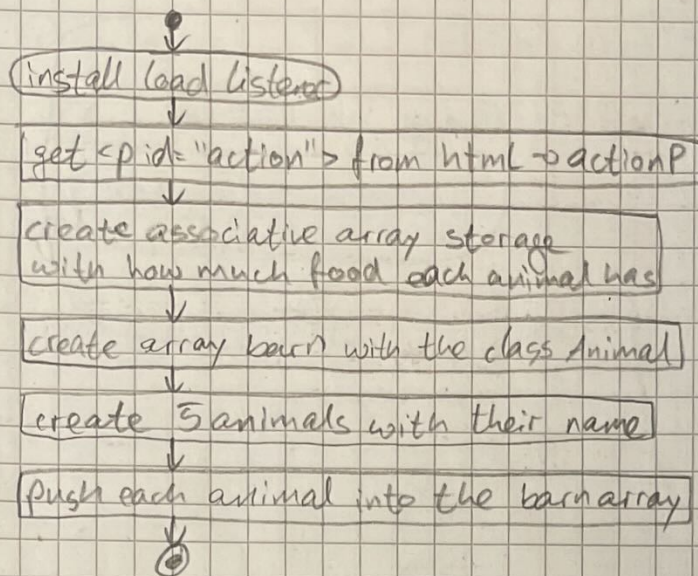 install load listener
get <p id="action"> from html → actionP
create associative array storage
with how much food each animal has
create array barn with the class Animal
create 5 animals with their name
push each animal into the barn array